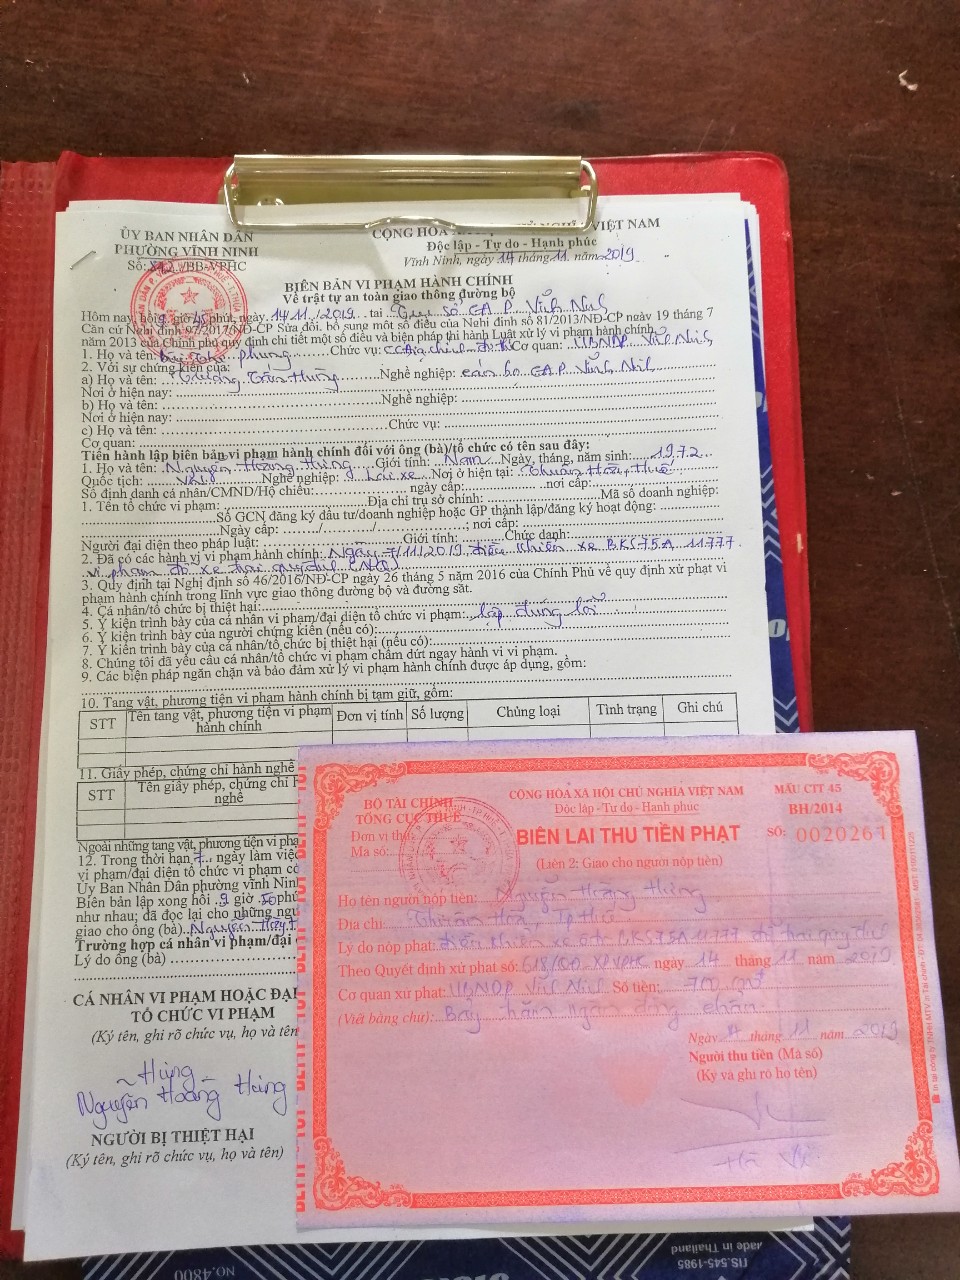 ỦY BAN NHÂN DÂN
PHƯỜNG VĨNH NINH
Số: /BB-VPHC
CỘNG HÒA VIỆT NAM
Độc lập - Tự do - Hạnh phúc
Vĩnh Ninh, ngày 14 tháng 11 năm 2019
BIÊN BẢN VI PHẠM HÀNH CHÍNH
Về trật tự an toàn giao thông đường bộ
Hôm nay, hồi 9 giờ 45 phút, ngày 14/11/2019 tại Trụ sở CA P. Vĩnh Ninh
Căn cứ Nghị định số 97/2017/NĐ-CP Sửa đổi, bổ sung một số điều của Nghị định số 81/2013/NĐ-CP ngày 19 tháng 7
năm 2013 của Chính phủ quy định chi tiết một số điều và biện pháp thi hành Luật xử lý vi phạm hành chính.
1. Họ và tên: Phụng Chức vụ: CC Cơ quan: UBND P. Vĩnh Ninh
2. Với sự chứng kiến của:
a) Họ và tên: Trương Hùng Nghề nghiệp: cán bộ CA P. Vĩnh Ninh
Nơi ở hiện nay:
b) Họ và tên: Nghề nghiệp:
Nơi ở hiện nay:
c) Họ và tên: Chức vụ:
Cơ quan:
Tiến hành lập biên bản vi phạm hành chính đối với ông (bà)/tổ chức có tên sau đây:
1. Họ và tên: Nguyễn Hoàng Hùng Giới tính: Nam Ngày, tháng, năm sinh: 1972
Quốc tịch: VN Nghề nghiệp: lái xe Nơi ở hiện tại: Thuận Hòa, Huế
Số định danh cá nhân/CMND/Hộ chiếu: ngày cấp: nơi cấp:
1. Tên tổ chức vi phạm: Địa chỉ trụ sở chính: Mã số doanh nghiệp:
Số GCN đăng ký đầu tư/doanh nghiệp hoặc GP thành lập/đăng ký hoạt động:
Ngày cấp: / / ; nơi cấp:
Người đại diện theo pháp luật: Giới tính: Chức danh:
2. Đã có các hành vi vi phạm hành chính: Ngày 7/11/2019 điều khiển xe BKS 75A 11777
vi phạm đỗ xe trái quy định
3. Quy định tại Nghị định số 46/2016/NĐ-CP ngày 26 tháng 5 năm 2016 của Chính Phủ về quy định xử phạt vi
phạm hành chính trong lĩnh vực giao thông đường bộ và đường sắt.
4. Cá nhân/tổ chức bị thiệt hại:
5. Ý kiến trình bày của cá nhân vi phạm/đại diện tổ chức vi phạm: lập đúng lỗi
6. Ý kiến trình bày của người chứng kiến (nếu có):
7. Ý kiến trình bày của cá nhân/tổ chức bị thiệt hại (nếu có):
8. Chúng tôi đã yêu cầu cá nhân/tổ chức vi phạm chấm dứt ngay hành vi vi phạm.
9. Các biện pháp ngăn chặn và bảo đảm xử lý vi phạm hành chính được áp dụng, gồm:
10. Tang vật, phương tiện vi phạm hành chính bị tạm giữ, gồm:
STT Tên tang vật, phương tiện vi phạm hành chính Đơn vị tính Số lượng Chủng loại Tình trạng Ghi chú
11. Giấy phép, chứng chỉ hành nghề
STT Tên giấy phép, chứng chỉ h
nghề
Ngoài những tang vật, phương tiện vi phạ
12. Trong thời hạn 7 ngày làm việc
vi phạm/đại diện tổ chức vi phạm có
Ủy Ban Nhân Dân phường vĩnh Ninh
Biên bản lập xong hồi 9 giờ 50 phú
như nhau; đã đọc lại cho những ngư
giao cho ông (bà) Nguyễn Hoàng
Trường hợp cá nhân vi phạm/đại
Lý do ông (bà)
CÁ NHÂN VI PHẠM HOẶC ĐẠI
TỔ CHỨC VI PHẠM
(Ký tên, ghi rõ chức vụ, họ và tên
Hùng
Nguyễn Hoàng Hùng
NGƯỜI BỊ THIỆT HẠI
(Ký tên, ghi rõ chức vụ, họ và tên)
BỘ TÀI CHÍNH
TỔNG CỤC THUẾ
Đơn vị thu:
Mã số:
CỘNG HÒA XÃ HỘI CHỦ NGHĨA VIỆT NAM
Độc lập - Tự do - Hạnh phúc
MẪU CTT 45
BH/2014
BIÊN LAI THU TIỀN PHẠT
SỐ: 0020261
(Liên 2: Giao cho người nộp tiền)
Họ tên người nộp tiền: Nguyễn Hoàng Hùng
Địa chỉ: Thuận Hoà, Tp Huế
Lý do nộp phạt: Điều khiển xe ôtô BKS 75A 11777 đỗ trái quy định
Theo Quyết định xử phạt số: 618/QĐ XPVPHC ngày 14 tháng 11 năm 2019
Cơ quan xử phạt: UBND P Vĩnh Ninh Số tiền: 700
(Viết bằng chữ): Bảy trăm ngàn đồng chẵn
Ngày tháng 11 năm 2019
Người thu tiền (Mã số)
(Ký và ghi rõ họ tên)
TIS.545-1985
Made in Thailand
NO.4800